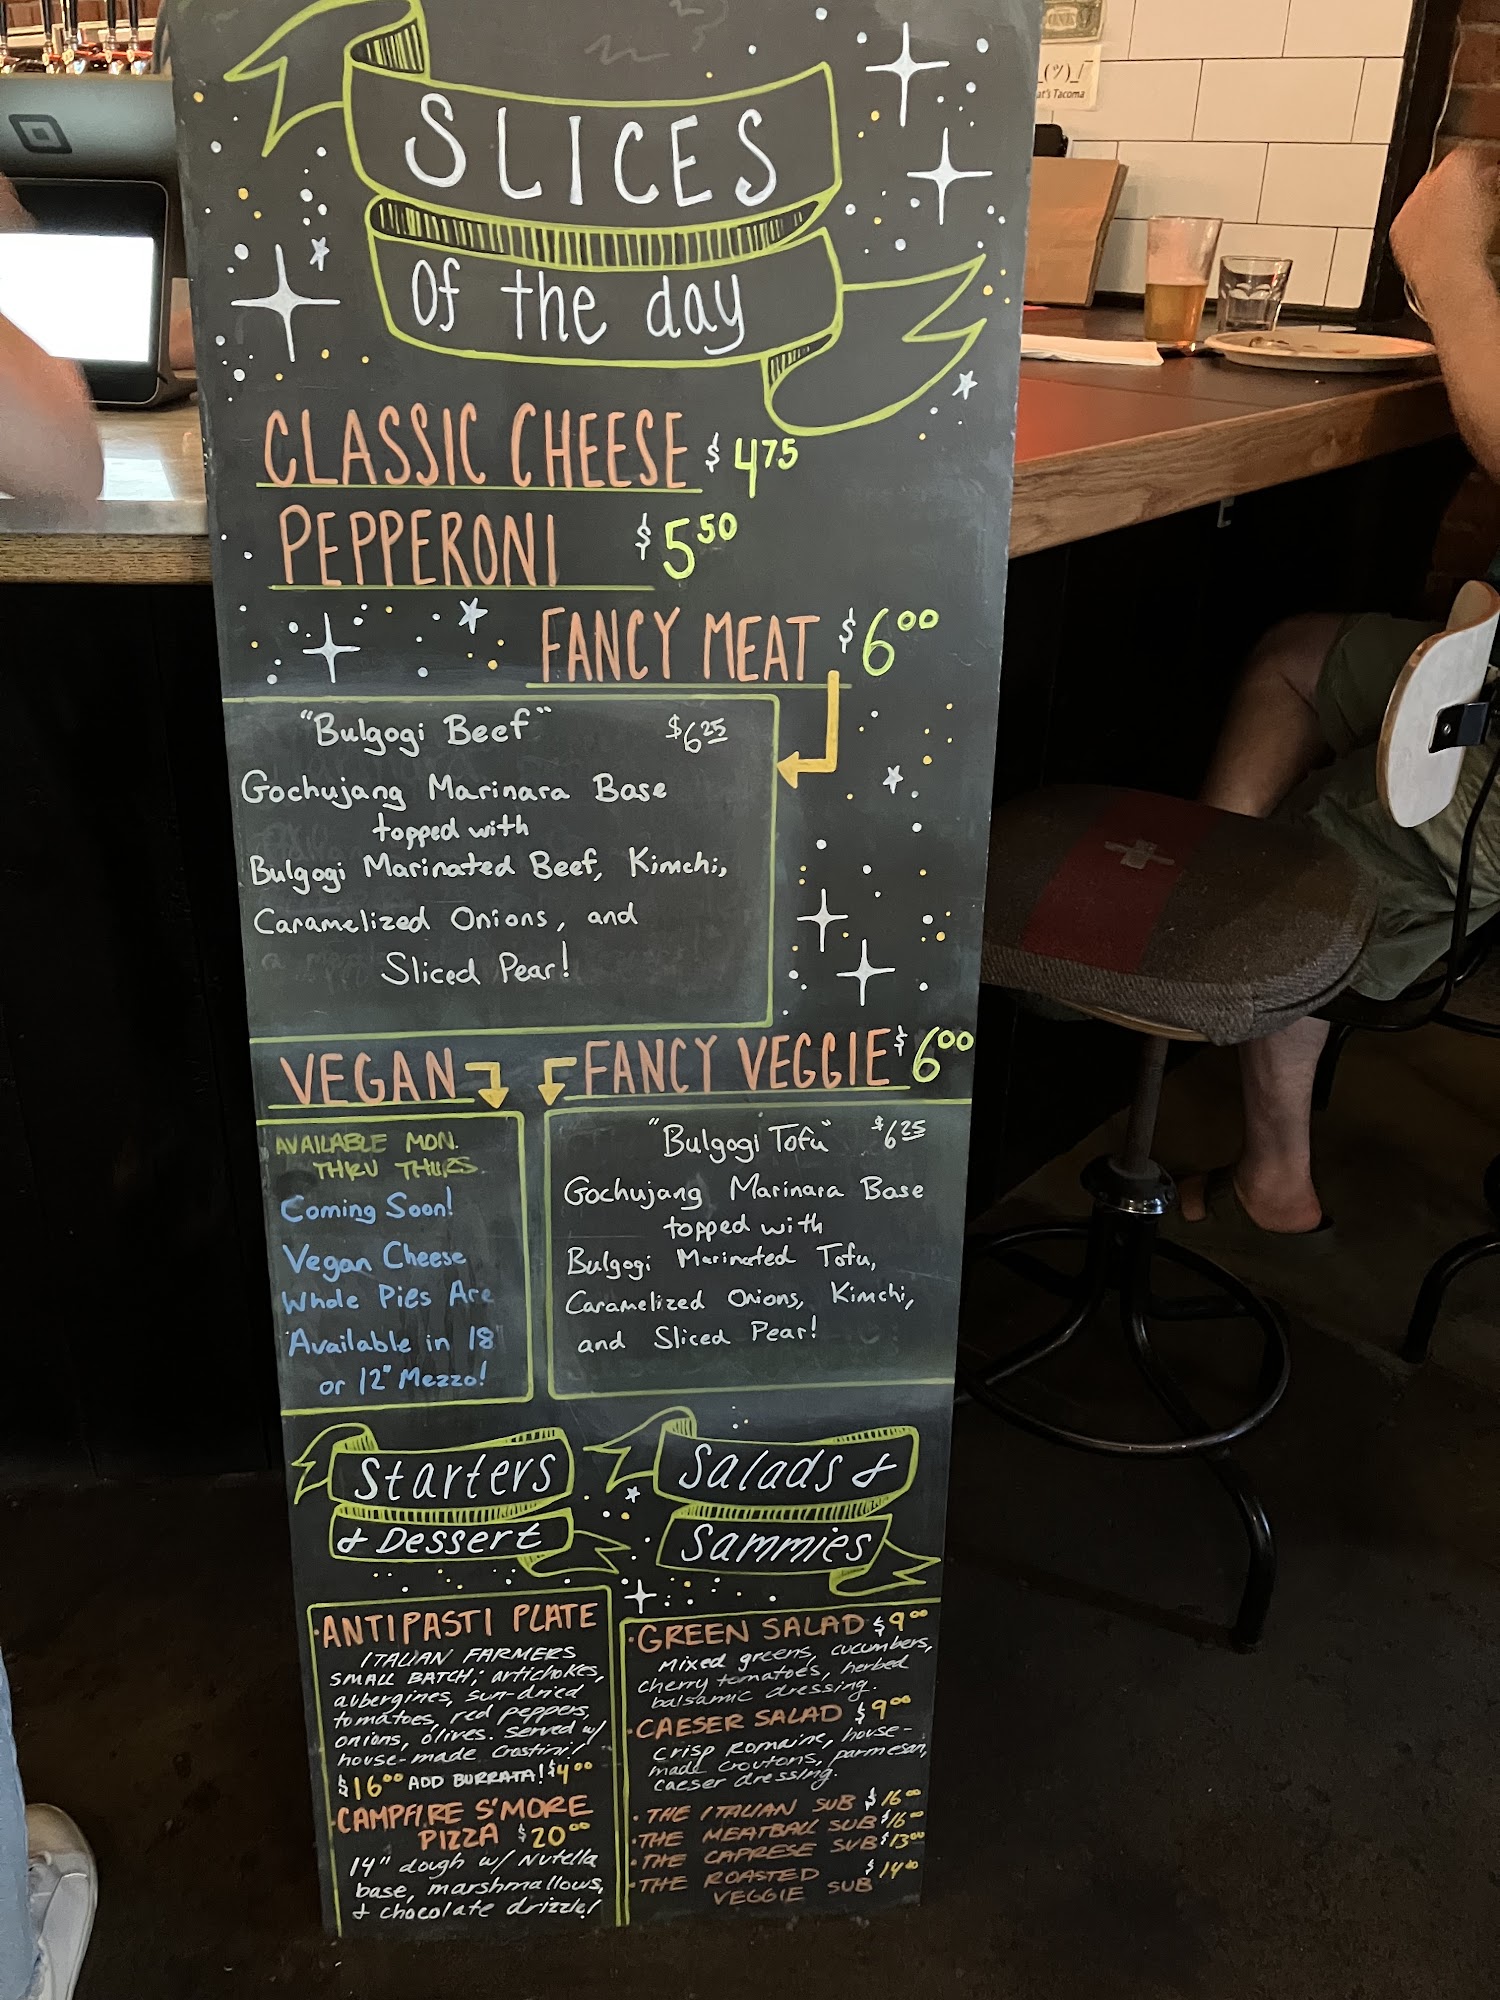 SLICES
Of the day
CLASSIC CHEESE $ 4 75
PEPPERONI $ 5 50
FANCY MEAT $ 6 00
"Bulgogi Beef" $6 25
Gochujang Marinara Base
topped with
Bulgogi Marinated Beef, Kimchi,
Caramelized Onions, and
Sliced Pear!
VEGAN
AVAILABLE MON.
THRU THURS.
Coming Soon!
Vegan Cheese
Whole Pies Are
Available in 18
or 12" Mezzo!
FANCY VEGGIE $ 6 00
"Bulgogi Tofu" $6 25
Gochujang Marinara Base
topped with
Bulgogi Marinated Tofu,
Caramelized Onions, Kimchi,
and Sliced Pear!
Starters
& Dessert
·ANTIPASTI PLATE
ITALIAN FARMERS
SMALL BATCH; artichokes,
aubergines, sun-dried
tomatoes, red peppers,
onions, olives. served w/
house-made crostini!
$16 00 ADD BURRATA! $4 00
·CAMPFIRE S'MORE
PIZZA $20 00
14" dough w/ Nutella
base, marshmallows,
& chocolate drizzle!
Salads &
Sammies
·GREEN SALAD $9 00
mixed greens, cucumbers,
cherry tomatoes, herbed
balsamic dressing.
·CAESER SALAD $9 00
crisp Romaine, house-
made croutons, parmesan,
caeser dressing.
·THE ITALIAN SUB $16 00
·THE MEATBALL SUB $16 00
·THE CAPRESE SUB $13 00
·THE ROASTED $14 00
VEGGIE SUB
_(ツ)_/¯
at's Tacoma